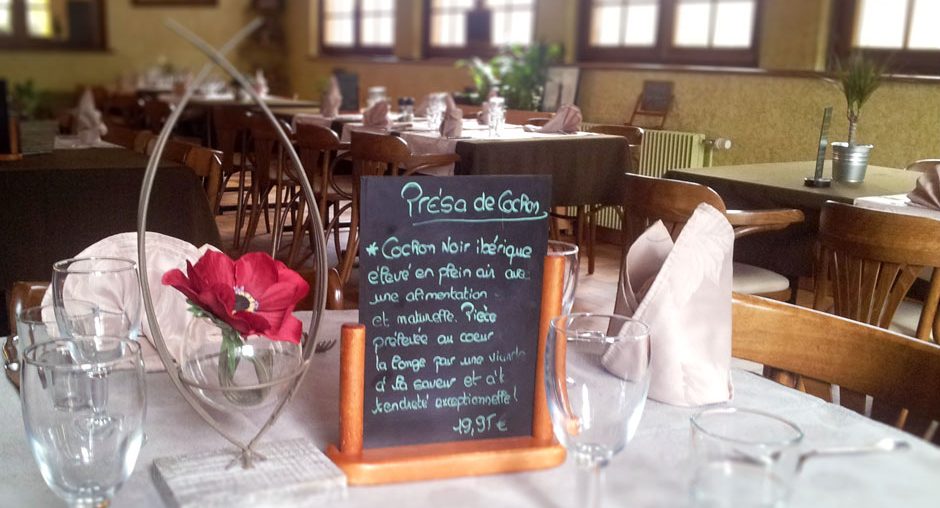 Présa de Cochon
* Cochon Noir ibérique
élevé en plein air avec
une alimentation
et naturelle. Pièce
préférée au coeur
la longe par une viande
à la saveur et à
tendreté exceptionnelle!
19,95€